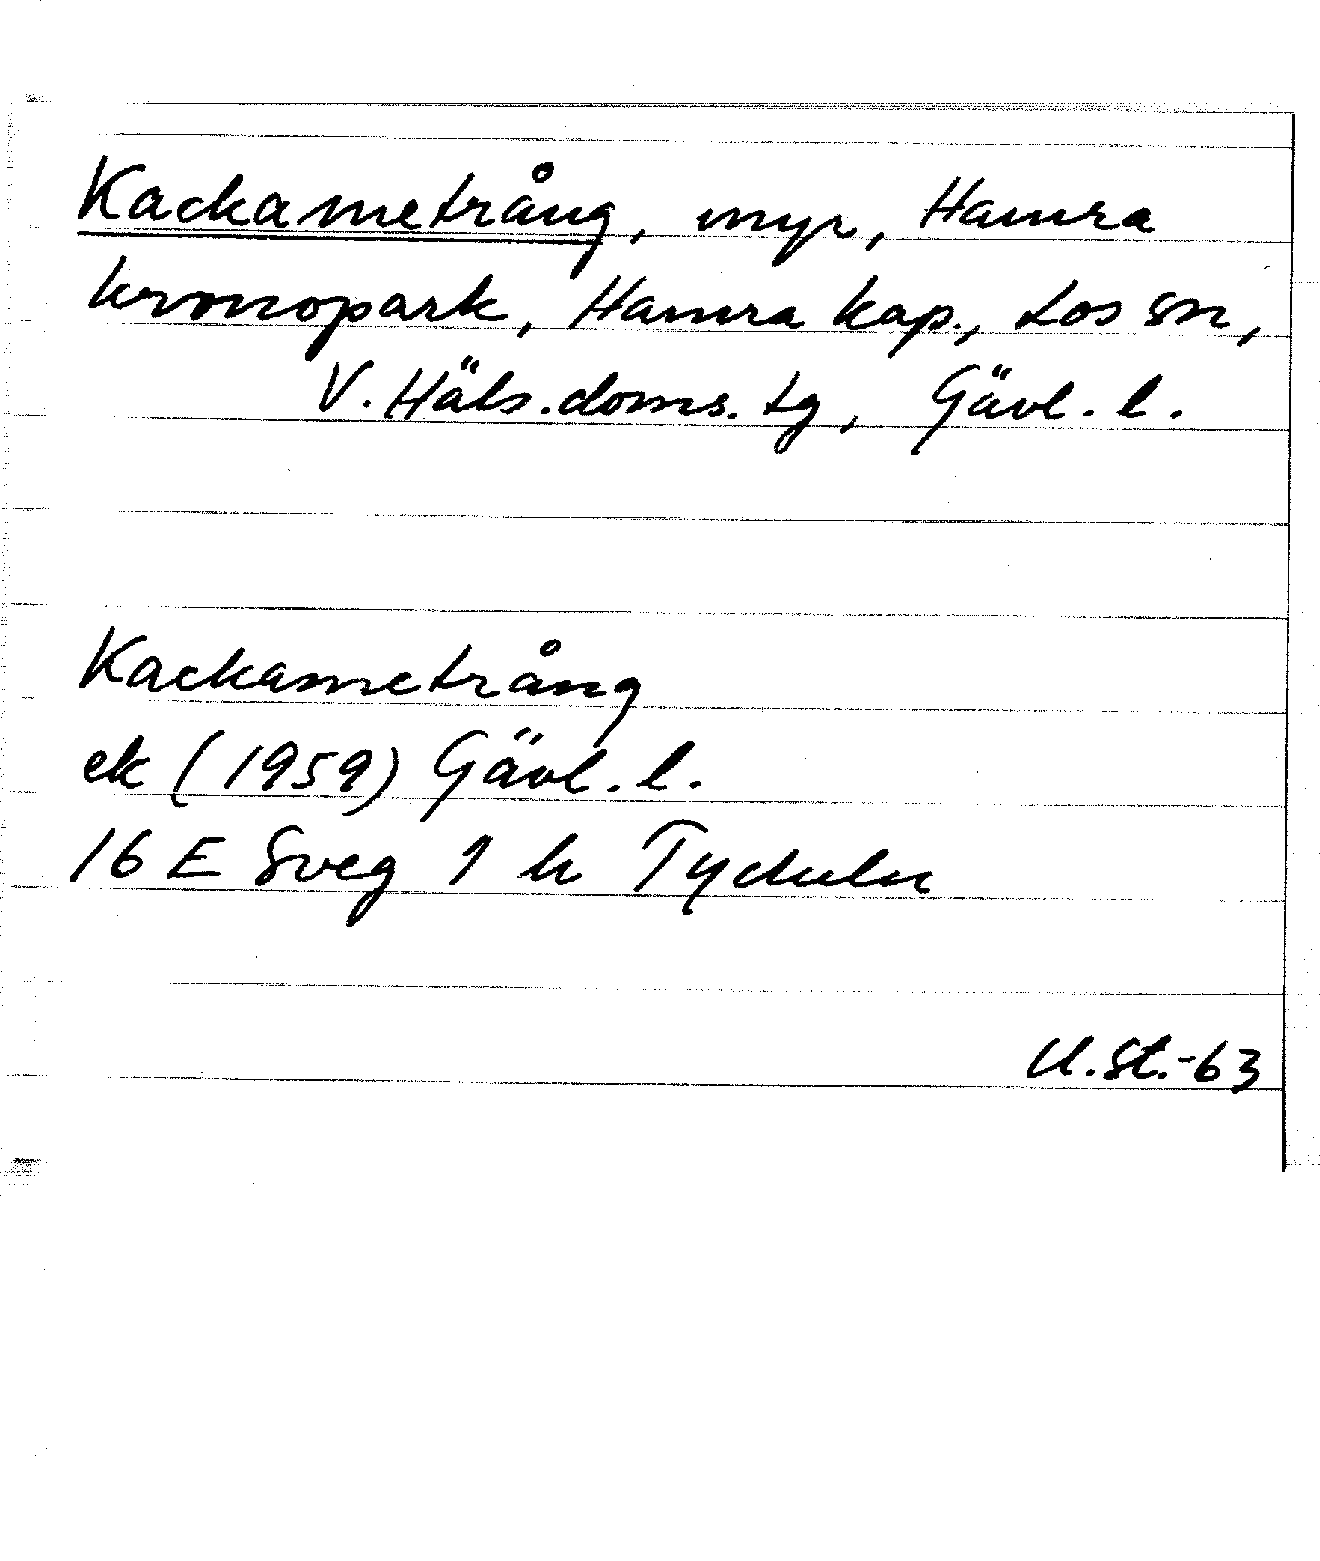 Kackametrång, myr, Hamra
kronopark, Hamra kap., Los sn,
V. Häls. doms. tg, Gävl. l.
Kackametrång
ek (1959) Gävl. l.
16 E Sveg 1 h Tyckeln
U.St.-63